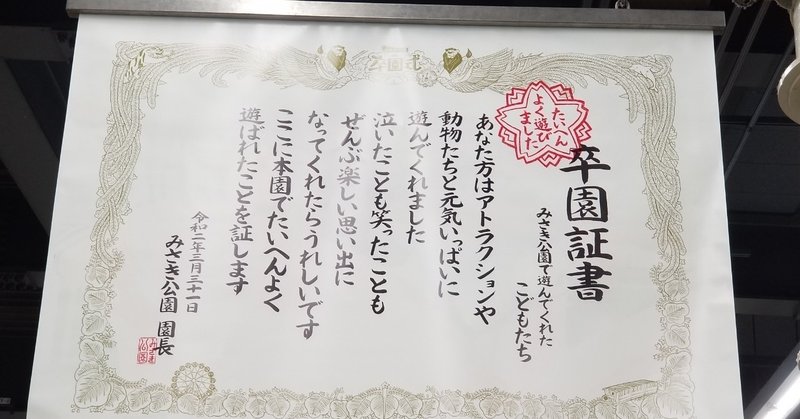 卒園式
たいへん
よく遊び
ました
卒園証書
みさき公園で遊んでくれた
こどもたち
あなた方はアトラクションや
動物たちと元気いっぱいに
遊んでくれました
泣いたことも笑ったことも
ぜんぶ楽しい思い出に
なってくれたらうれしいです
ここに本園でたいへんよく
遊ばれたことを証します
令和二年三月三十一日
みさき公園 園長